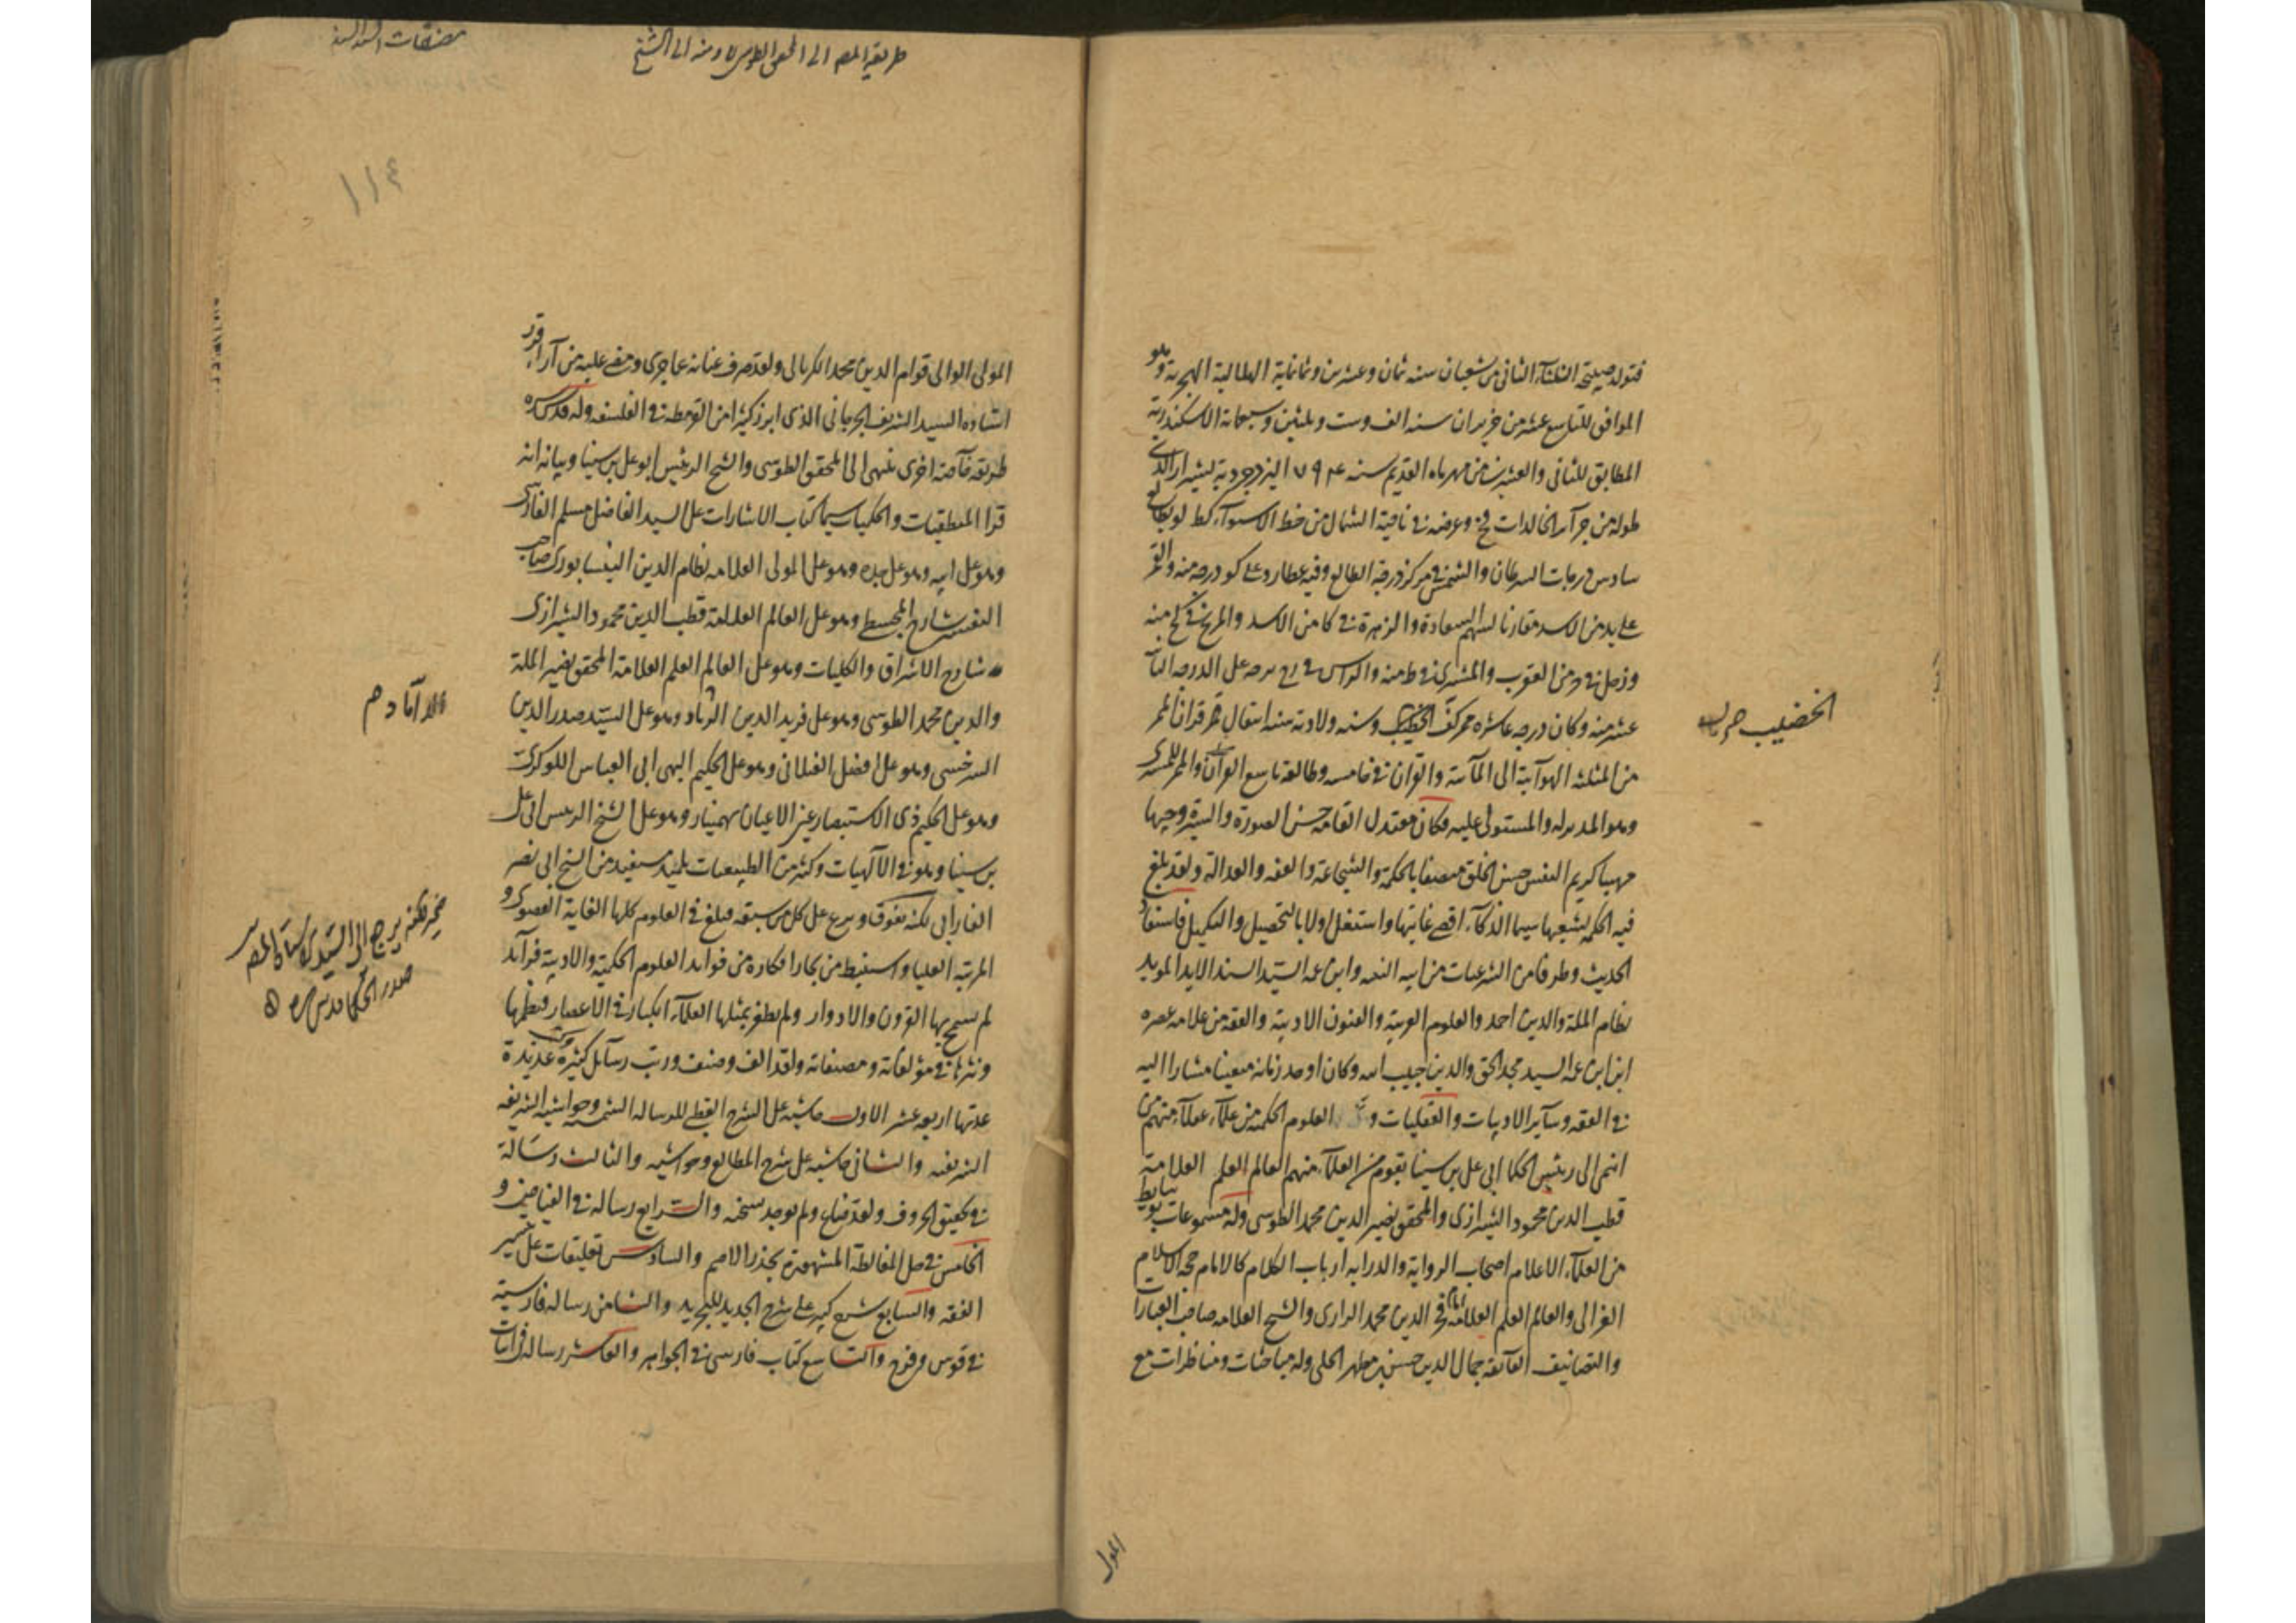 فتولد صبيحة الثلثاء الثاني من شعبان سنة ثمان وعشرين وثمانماية الهلالية الهجرية وهو
الموافق للتاسع عشر من حزيران سنة الف وست وثلثين وسبعمائة الاسكندرية
المطابق للثاني والعشرين من مهرماه القديم سنة ٧٩٤ اليزدجردية بشيراز الذي
طوله من جزآئر الخالدات فح وعرضه في ناحية الشمال من خط الاستواء كط لو بطالع
سادس درجات السرطان والشمس في مركز درجة الطالع وفيه عطارد على كو درجه منه والقمر
على يد من الاسد مقارنا لسهم السعادة والزهرة في كا من الاسد والمريخ في كح منه
وزحل في و من العقرب والمشتري في ط منه والراس في رح درجه على الدرجه
عشر منه وكان درجه عاشره ممر كف الخضيب وسنه ولادته سنه انتقال ممر قران الممر
من المثلثه الهوآئية الى المآئية والقران في خامسه وطالعه تاسع القران والممر للمشترى
وهو المدبر له والمستولى عليه وكان معتدل القامه حسن الصورة والسيرة وجيها
مهيبا كريم النفس حسن الخلق متصفا بالحكمة والشجاعة والعفه والعدالة ولقد بلغ
فيه الحكمة بشعبها سيما الذكآء اقصى غاياتها واشتغل اولا بالتحصيل والتكميل فاستفاد
الحديث وطرفا من الشرعيات من ابيه الثقه وابن عمه السيد السند الايد المويد
نظام الملة والدين احمد والعلوم العربية والفنون الادبية والفقه من علامه عصره
ابن ابن عمه السيد مجد الحق والدين حبيب الله وكان اوحد زمانه متعينا مشارا اليه
في الفقه وسآير الادبيات والعقليات و العلوم الحكمية من علمآء عقلآء منهم من
انتمى الى رئيس الحكما ابي علي بن سينا بقوم من العلمآء منهم العالم العلم العلامة
قطب الدين محمود الشيرازي والمحقق نصير الدين محمد الطوسي وله مسموعات بوسايط
من العلمآء الاعلام اصحاب الرواية والدرايه ارباب الكلام كالامام حجه الاسلام
الغزالي والعالم العلم العلامه امام فخر الدين محمد الرازي والشيخ العلامه صاحب العبارات
والتصانيف الفآئقه جمال الدين حسن بن مطهر الحلي وله مباحثات ومناظرات مع
الخضيب
المولى
طريقة المصـ الى المحقق الطوسي ومنه الى الشيخ
مصنفات السيد السند
١١٤
المولى الوالي قوام الدين محمد الكربالي ولقد صرف عنانه عما جرى ومضى عليه من آراء قرر
استاده السيد الشريف الجرجاني الذي ابرز كثيرا من القرمطه في الفلسفه وله قدس سره
طريقه خآصة اخرى ينتهى الى المحقق الطوسي والشيخ الرئيس ابو علي بن سينا وبيانه انه
قرا المنطقيات والحكميات سيما كتاب الاشارات على السيد الفاضل مسلم الفارسي
وهو على ابيه وهو على جده وهو على المولى العلامه نظام الدين النيسابوري صاحب
التفسير شارح المجسطي وهو على العالم العلامة قطب الدين محمود الشيرازي
شارح الاشراق والكليات وهو على العالم العلم العلامة المحقق نصير الملة
والدين محمد الطوسي وهو على فريد الدين الدماد وهو على السيد صدر الدين
السرخسي وهو على افضل الغيلاني وهو على الحكيم الهي ابي العباس اللوكري
وهو على الحكيم ذي الاستبصار عين الاعيان بهمنيار وهو على الشيخ الرئيس ابي علي
بن سينا وهو في الآلهيات وكثير من الطبيعيات تلميذ مستفيد من الشيخ ابي نصر
الفارابي لكنه تفوق وبرع على كل من سبقه فبلغ في العلوم كلها الغاية القصوى و
المرتبة العليا واستنبط من بحار افكاره من فوايد العلوم الحكمية والادبية فرآئد
لم تسمح بها القرون والادوار ولم يظفر بمثلها العلمآء الكبار في الاعصار فنظمها
ونثرها في مؤلفاته ومصنفاته ولقد الف وصنف ورتب رسآئل كثيرة عديدة
عدتها اربعه عشر الاول حاشيه على الشرح القطبي للرساله الشمسيه وحواشيه الشريفه
الشريفه والثاني حاشيه على شرح المطالع وحواشيه والثالث رسالة
في تحقيق الحروف ولقد ضاع ولم يوجد نسخته والرابع رساله في القياصين و
الخامس في حل المغالطة المشهورة بجذر الاصم والسادس تعليقات على تيسير
الفقه والسابع شرح كبير على شرح الجديد للتجريد والثامن رساله فارسية
في قوس وقزح والتاسع كتاب فارسي في الجواهر والعاشر رساله في اثبات
الداماد م
ضمير لكنه يرجع الى السيد استاد المصـ
صدر الحكما قدس سره